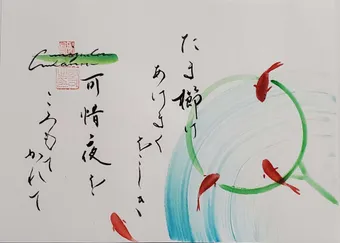 たま櫛け
あけまくをしき
可惜夜を
ころもてかれて